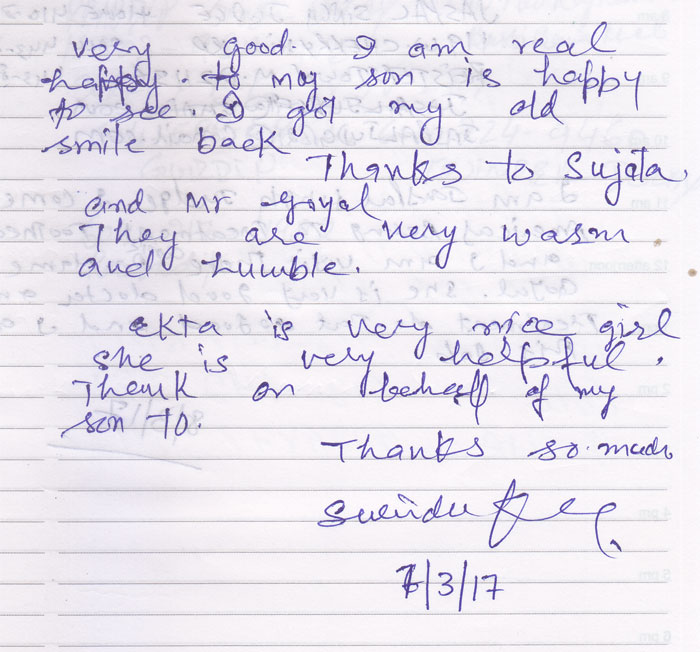 very good. I am real
happy. to my son is happy
to see. I got my old
smile back
Thanks to Sujata,
and Mr Goyal
They are very warm
and humble.
ekta is very nice girl
she is very helpful.
Thank on behalf of my
son to.
Thanks so. much
7/3/17